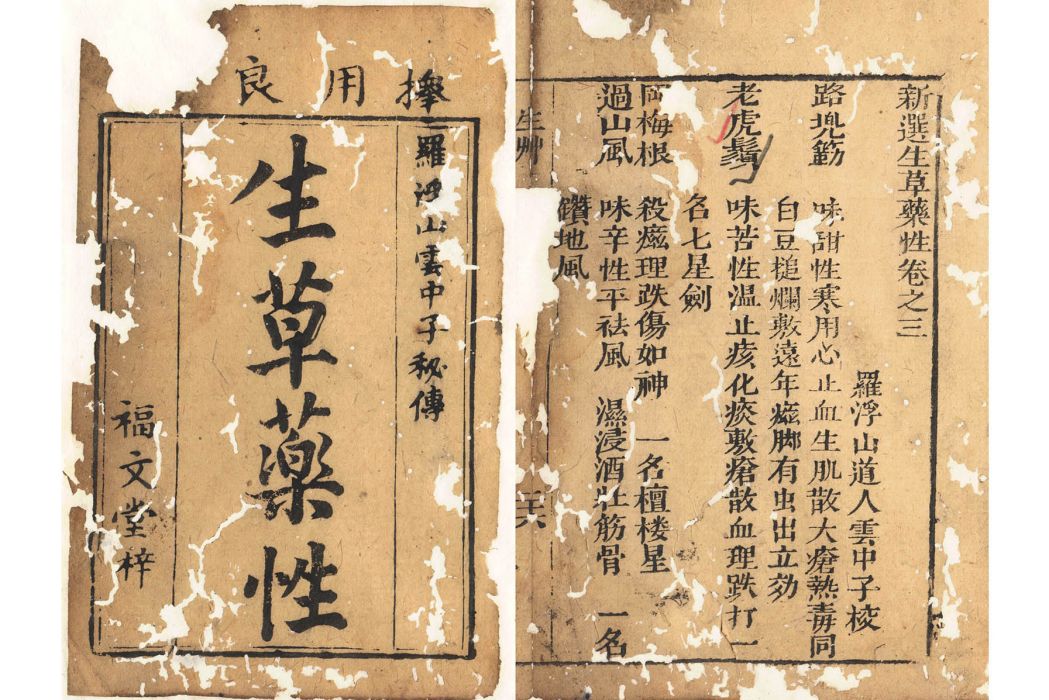 用良
羅浮山雲中子秘傳
生草藥性
福文堂梓
新選生草藥性卷之三
羅浮山道人雲中子校
路兜筯 味甜性寒用心止血生肌散大瘡熱毒同
白豆搥爛敷遠年脚有虫出立効
老虎鬚 味苦性温止咳化痰敷瘡散血理跌打一
名七星劍
岡梅根 殺理跌傷如神 一名檀楼星
過山風 味辛性平祛風 濕浸酒壮筋骨 一名
鑽地風
生艸